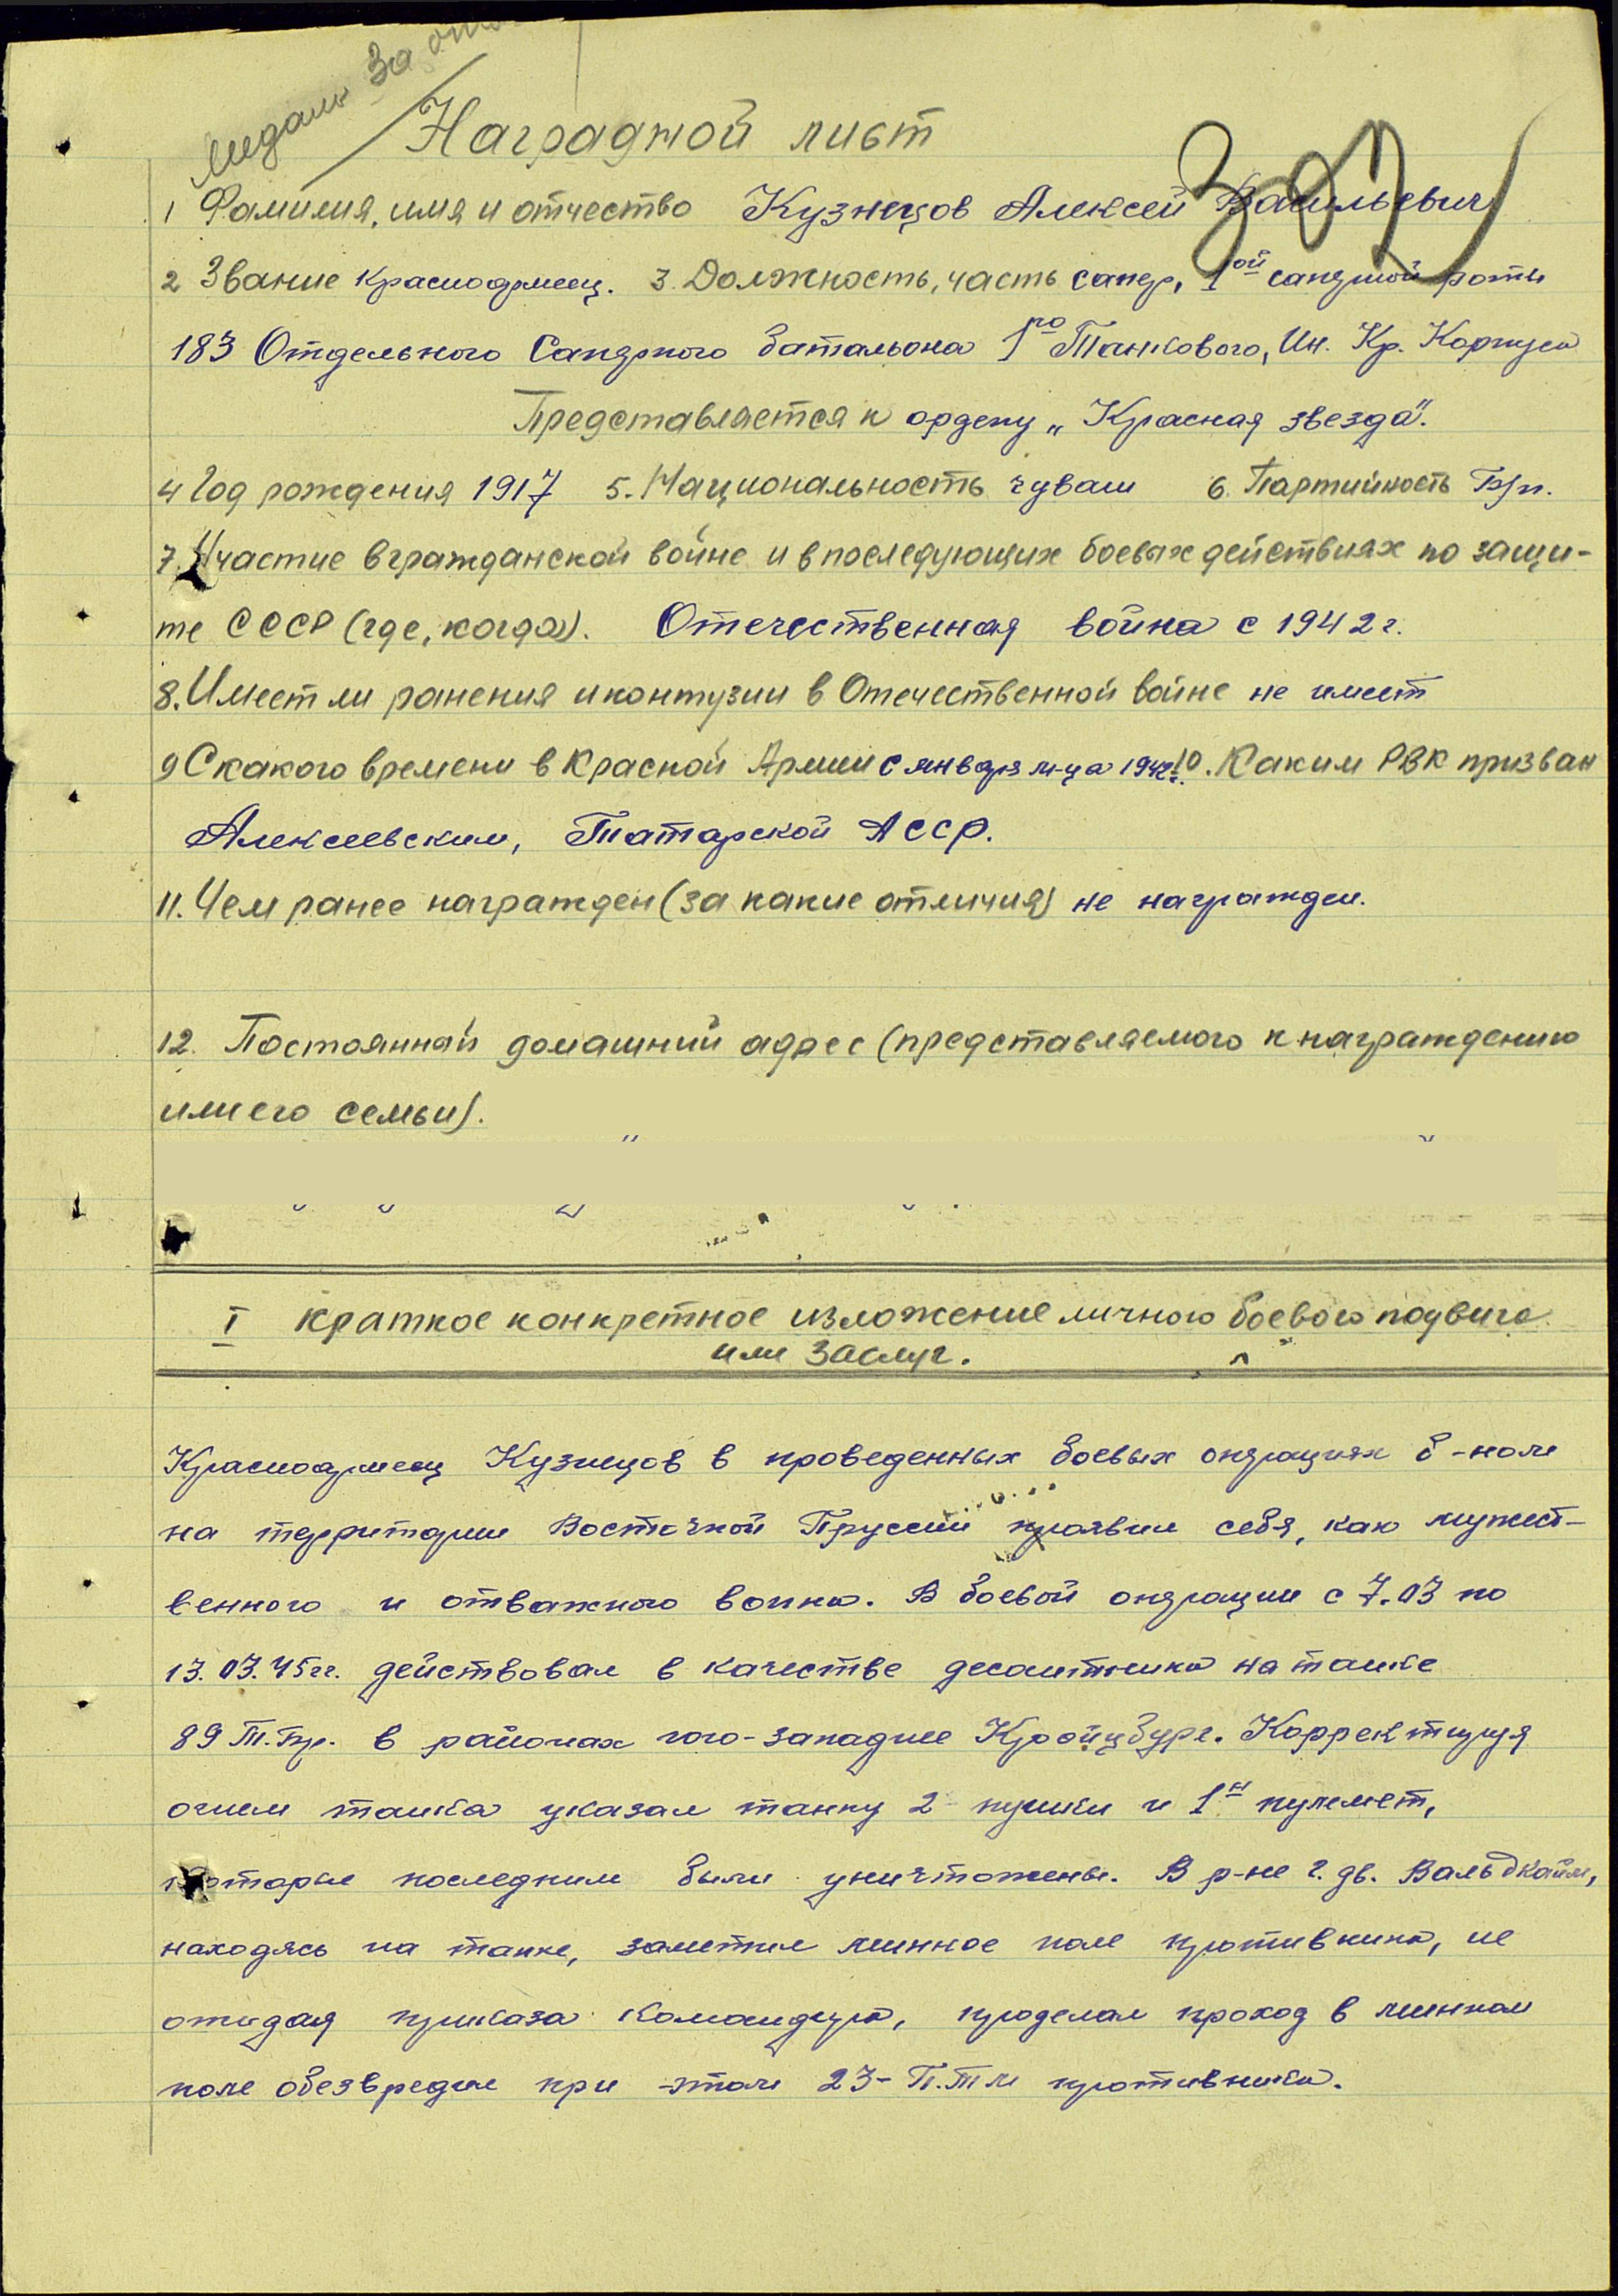 Медаль За
Наградной лист
307
1 Фамилия, имя и отчество Кузнецов Алексей Васильевич
2 Звание Красноармеец. 3. Должность, часть сапер, 1ой саперной роты
183 Отдельного Саперного батальона 1го Танкового, Ин. Кр. Корпуса
Представляется к ордену „Красная звезда".
4 Год рождения 1917 5. Национальность чуваш 6. Партийность Б/п.
7. Участие в гражданской войне и в последующих боевых действиях по защи-
те СССР (где, когда). Отечественная война с 1942 г.
8. Имеет ли ранения и контузии в Отечественной войне не имеет
9 С какого времени в Красной Армии с января м-ца 1942 г. 10. Каким РВК призван
Алексеевским, Татарской АССР.
11. Чем ранее награжден (за какие отличия) не награжден.
12. Постоянный домашний адрес (представляемого к награждению
или его семьи).
I краткое конкретное изложение личного боевого подвига
или заслуг.
Красноармеец Кузнецов в проведенных боевых операциях б-ном
на территории Восточной Пруссии проявил себя, как мужест-
венного и отважного воина. В боевой операции с 7.03 по
13.03.45 гг. действовал в качестве десантника на танке
89 Т.Бр. в районах юго-западнее Кройцбург. Корректируя
огнем танка указал танку 2 пушки и 1н пулемет,
которые последним были уничтожены. В р-не г. дв. Вальдкайм,
находясь на танке, заметил минное поле противника, не
ожидая приказа командира, проделал проход в минном
поле обезвредив при этом 23- П.Т.М противника.